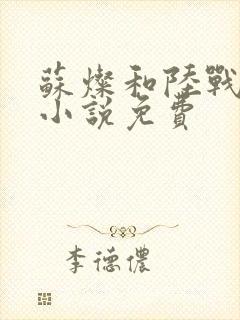 蘇燦和陸戰
小說免費
李德儂